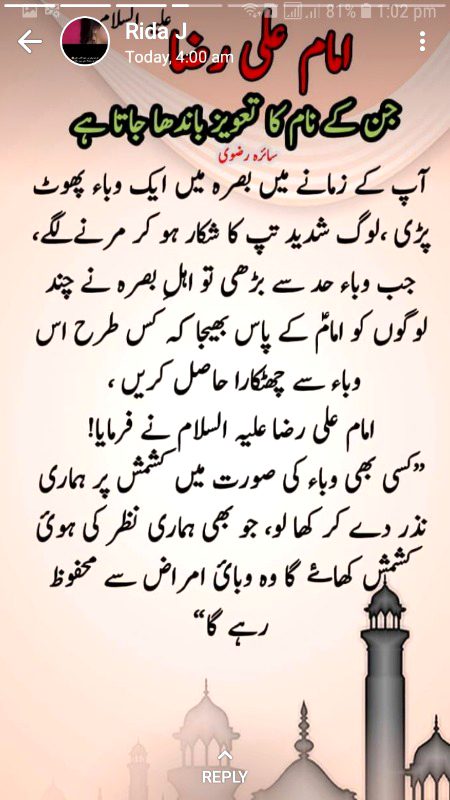 81% 1:02 pm
علیہ السلام
Rida J
Today, 4:00 am
امام علی رضا
جن کے نام کا تعویز باندھا جاتا ہے
سائرہ رضوی
آپ کے زمانے میں بصرہ میں ایک وباء پھوٹ
پڑی ،لوگ شدید تپ کا شکار ہو کر مرنے لگے،
جب وباء حد سے بڑھی تو اہلِ بصرہ نے چند
لوگوں کو امامؑ کے پاس بھیجا کہ کس طرح اس
وباء سے چھٹکارا حاصل کریں ،
امام علی رضا علیہ السلام نے فرمایا!
”کسی بھی وباء کی صورت میں کشمش پر ہماری
نذر دے کر کھا لو، جو بھی ہماری نظر کی ہوئ
کشمش کھائے گا وہ وبائ امراض سے محفوظ
رہے گا“
REPLY